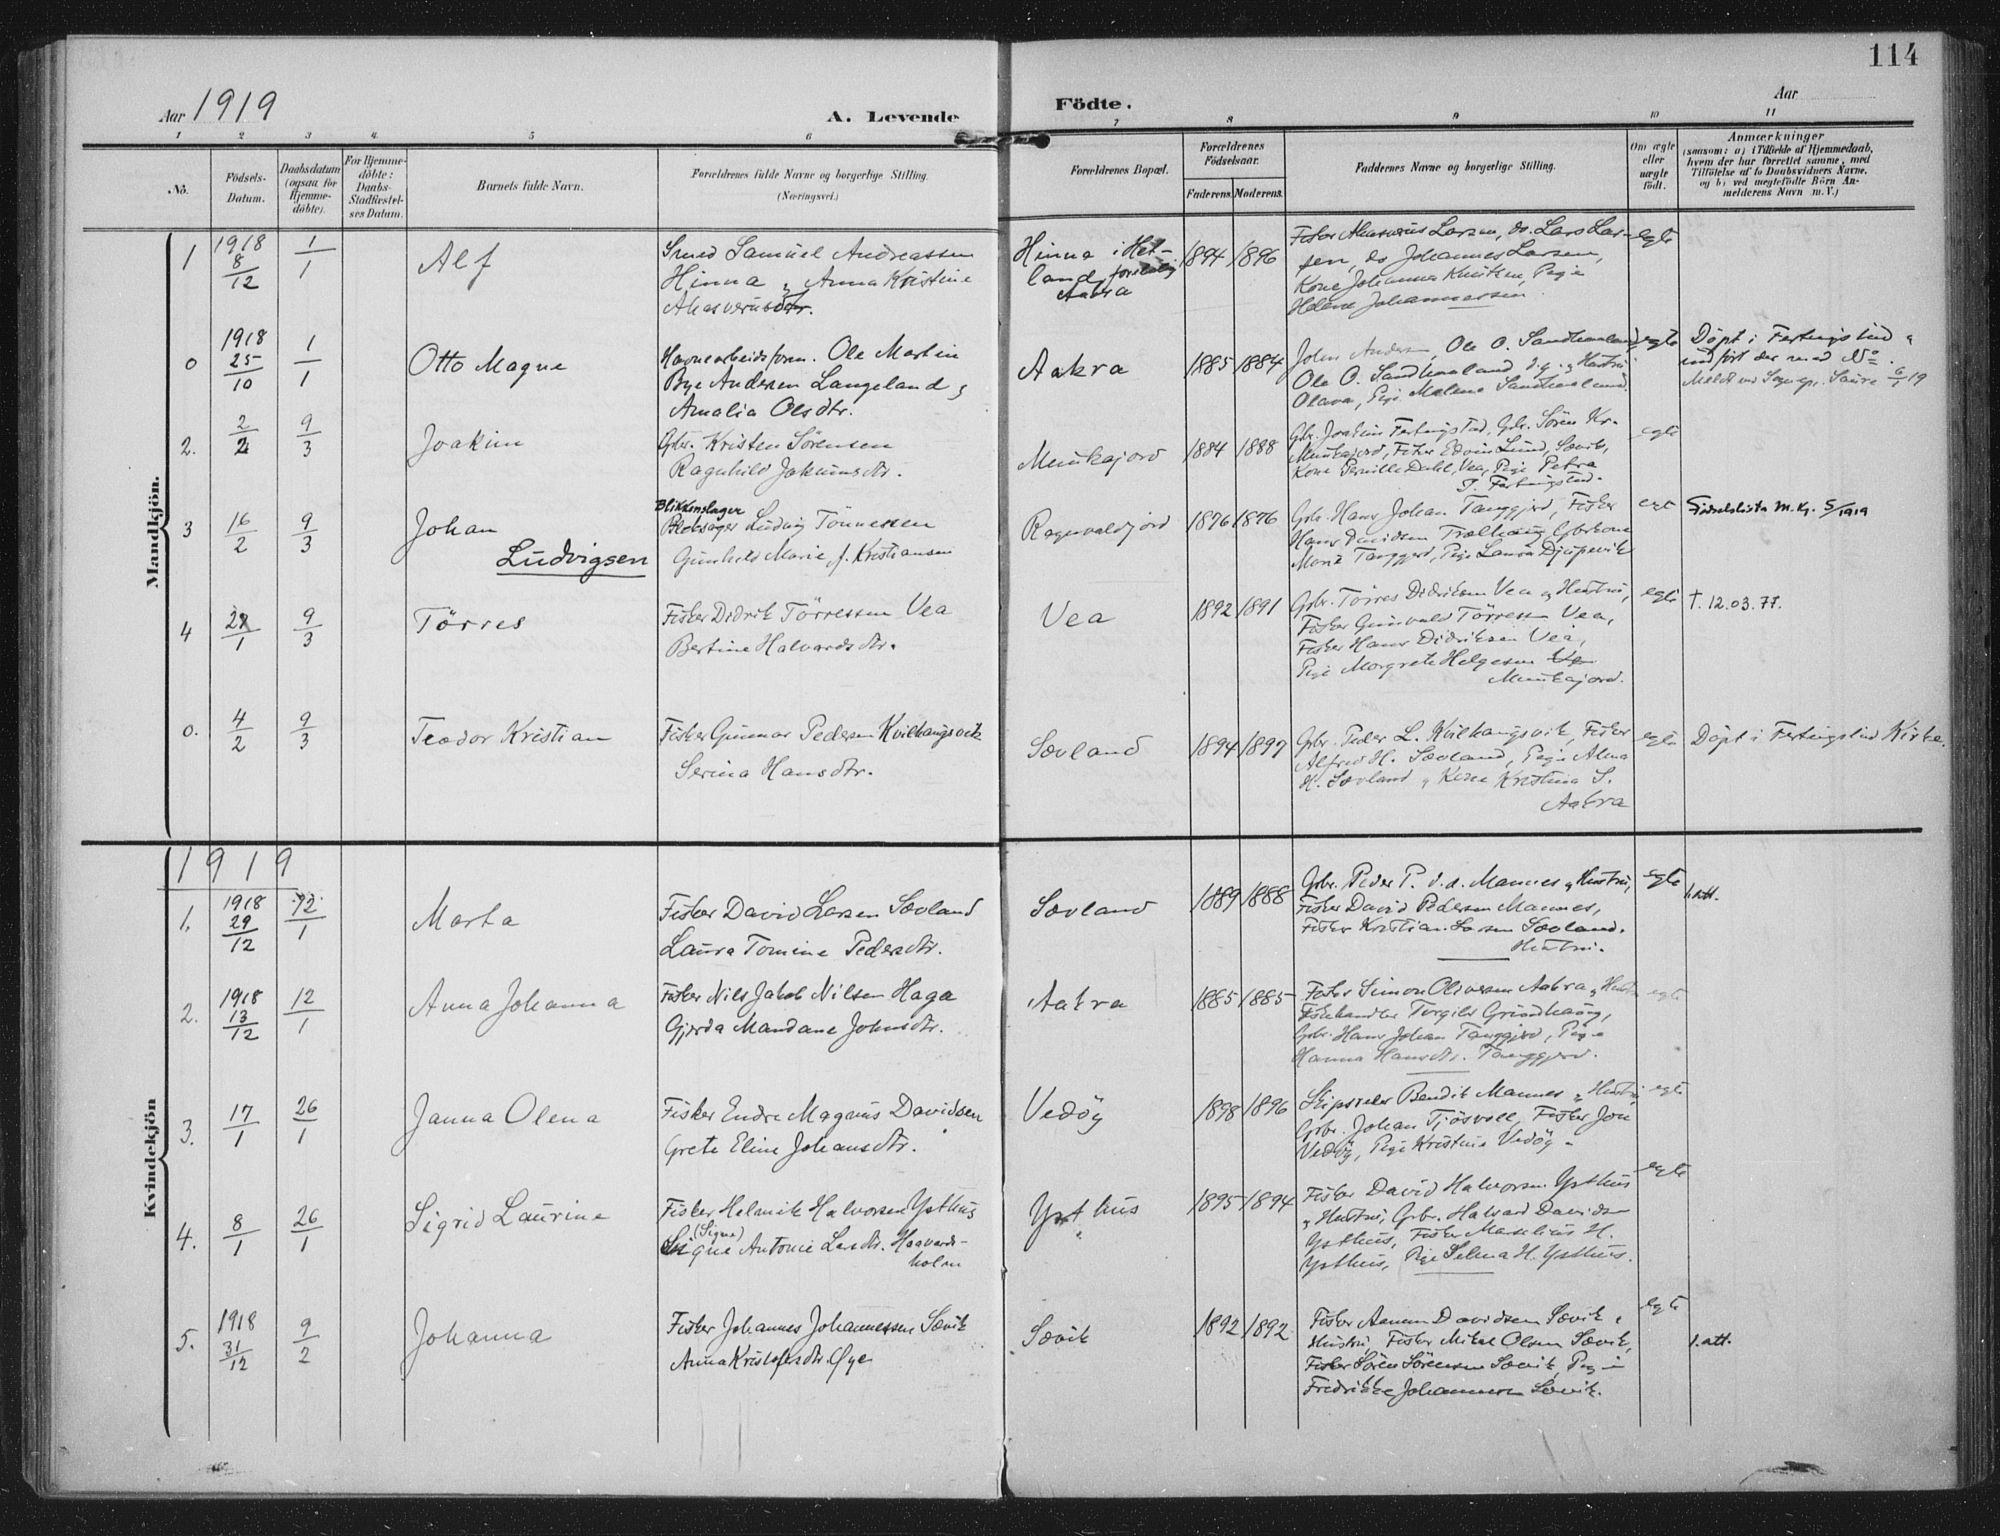 114
Aar 1919
A. Levende
Födte.
Aar
1 2 3 4. 5 6 7 8 9 10 11
No.
Födsels-
Datum.
Daabsdatum
(ogsaa för
Hjemme-
döbte).
For Hjemme-
döbte:
Daabs-
Stadfæstel-
ses Datum.
Barnets fulde Navn.
Forældrenes fulde Navne og borgerlige Stilling.
(Næringsvei.)
Forældrenes Bopæl.
Forældrenes
Födselsaar.
Faderens.
Moderens.
Faddernes Navne og borgerlige Stilling.
Om ægte
eller
uægte
födt.
Anmærkninger
(saasom: a) i Tilfælde af Hjemmedaab,
hvem der har forrettet samme, med
Tilföielse af to Daabsvidners Navne,
og b) ved uægtefödte Börn An-
melderens Navn m. V.)
Mandkjön.
1
1918
8/12
1/1
Alf
Smed Samuel Andreassen
Hinna, Anna Kristine
Ahasverusdtr.
Hinna i Het-
land, forelöbig
Aakra
1894 1896
Fisker Ahasverus Larsen, do. Lars Lar-
sen, do Johannes Larsen,
Kone Johanna Knutsen, Pige
Helene Johannessen
egte
0
1918
25/10
1/1
Otto Magne
Havnearbeidsform. Ole Martin
Bye Andersen Langeland,
Amalia Olsdtr.
Aakra
1885 1884
John Andersen, Ole O. Sandhaaland
Ole O. Sandhaaland d.y., Hustru
Olava, Pige Malene Sandhaaland.
egte
Döpt i Ferkingstad
indfört der med No.
2.
2/2
9/3
Joakim
Gbr. Kristen Sörensen
Ragnhild Jakimsdtr.
Munkajord
1884 1888
Gbr. Joakim Ferkingstad, Gbr. Sören Kr.
Munkajord, Fisker Edvin Lund, Sævik,
Kone Pernille Dahl, Vea, Pige Petra
J. Ferkingstad.
egte
3
16/2
9/3
Johan
Ludvigsen
Blikkenslager
Ludvig Tönnessen
Gunhild Marie f. Kristiansen
Ragnvaldsjord
1876 1876
Gbr. Hans Johan Tanggjerd, Fisker
Hans Davidsen Trælhaug, Gbrkone
Marie Tanggjerd, Pige Laura Djupevik
egte
Fødselslista m.kj. 5/1919
4
9/3
Törres
Fisker Didrik Törressen Vea
Bertine Halvardsdtr.
Vea
1892 1891
Gbr. Törres Didriksen Vea, Hustru,
Fisker Gunvald Törressen Vea,
Fisker Hans Didriksen Vea,
Pige Margrete Helgesen
Munkajord.
egte
†. 12.03.77.
0.
4/2
9/3
Teodor Kristian
Fisker Gunnar Pedersen Kvilhaugsvik
Serina Hansdtr.
Sævland
1894 1897
Gbr. Peder L. Kvilhaugsvik, Fisker
Alfred H. Sævland, Pige Alma
H. Sævland, Kone Kristina S.
Aakra
egte
Döpt i Ferkingstad Kirke.
Kvindekjön
1919
1.
1918
29/12
12/1
Marta
Fisker David Larsen Sævland
Laura Tomine Pedersdtr.
Sævland
1889 1888
Gbr. Peder P. d.æ. Mannes, Hustru,
Fisker David Pedersen Mannes,
Fisker Kristian Larsen Sævland,
Hustru.
egte
1.att.
2.
1918
13/12
12/1
Anna Johanna
Fisker Nils Jakob Nilsen Haga
Gjerda Mandane Johnsdtr.
Aakra
1885 1885
Fisker Simon Olivesen Aakra, Hustru
Fiskehandler Torgils Grindhaug,
Gbr. Hans Johan Tanggjerd, Pige
Hanna Hansdtr. Tanggjerd.
egte
3.
17/1
26/1
Janna Olena
Fisker Endre Magnus Davidsen
Grete Eline Johansdtr.
Vedöy
1898 1896
Skipsreder Bendik Mannes, Hustru
Gbr. Johan Tjösvoll, Fisker Jon
Vedöy, Pige Kristine Vedöy.
egte
4.
8/1
26/1
Sigrid Laurine
Fisker Helmik Halvorsen Ysthus
(Signe)
Signe Antonie Larsdtr. Haavards-
holm
Ysthus
1895 1894
Fisker David Halvorsen Ysthus
, Hustru, Gbr. Halvard Davidsen
Ysthus, Fisker Marselius H.
Ysthus, Pige Selma H. Ysthus.
egte
5.
1918
31/12
9/2
Johanna
Fisker Johannes Johannessen Sævik
Anna Kristofersdtr. Øye
Sævik
1892 1892
Fisker Aamun Davidsen Sævik,
Hustru, Fisker Mikal Olsen Sævik,
Fisker Sören Sörensen Sævik, Pige
Fredrikke Johannesen Sævik.
egte
1.att.